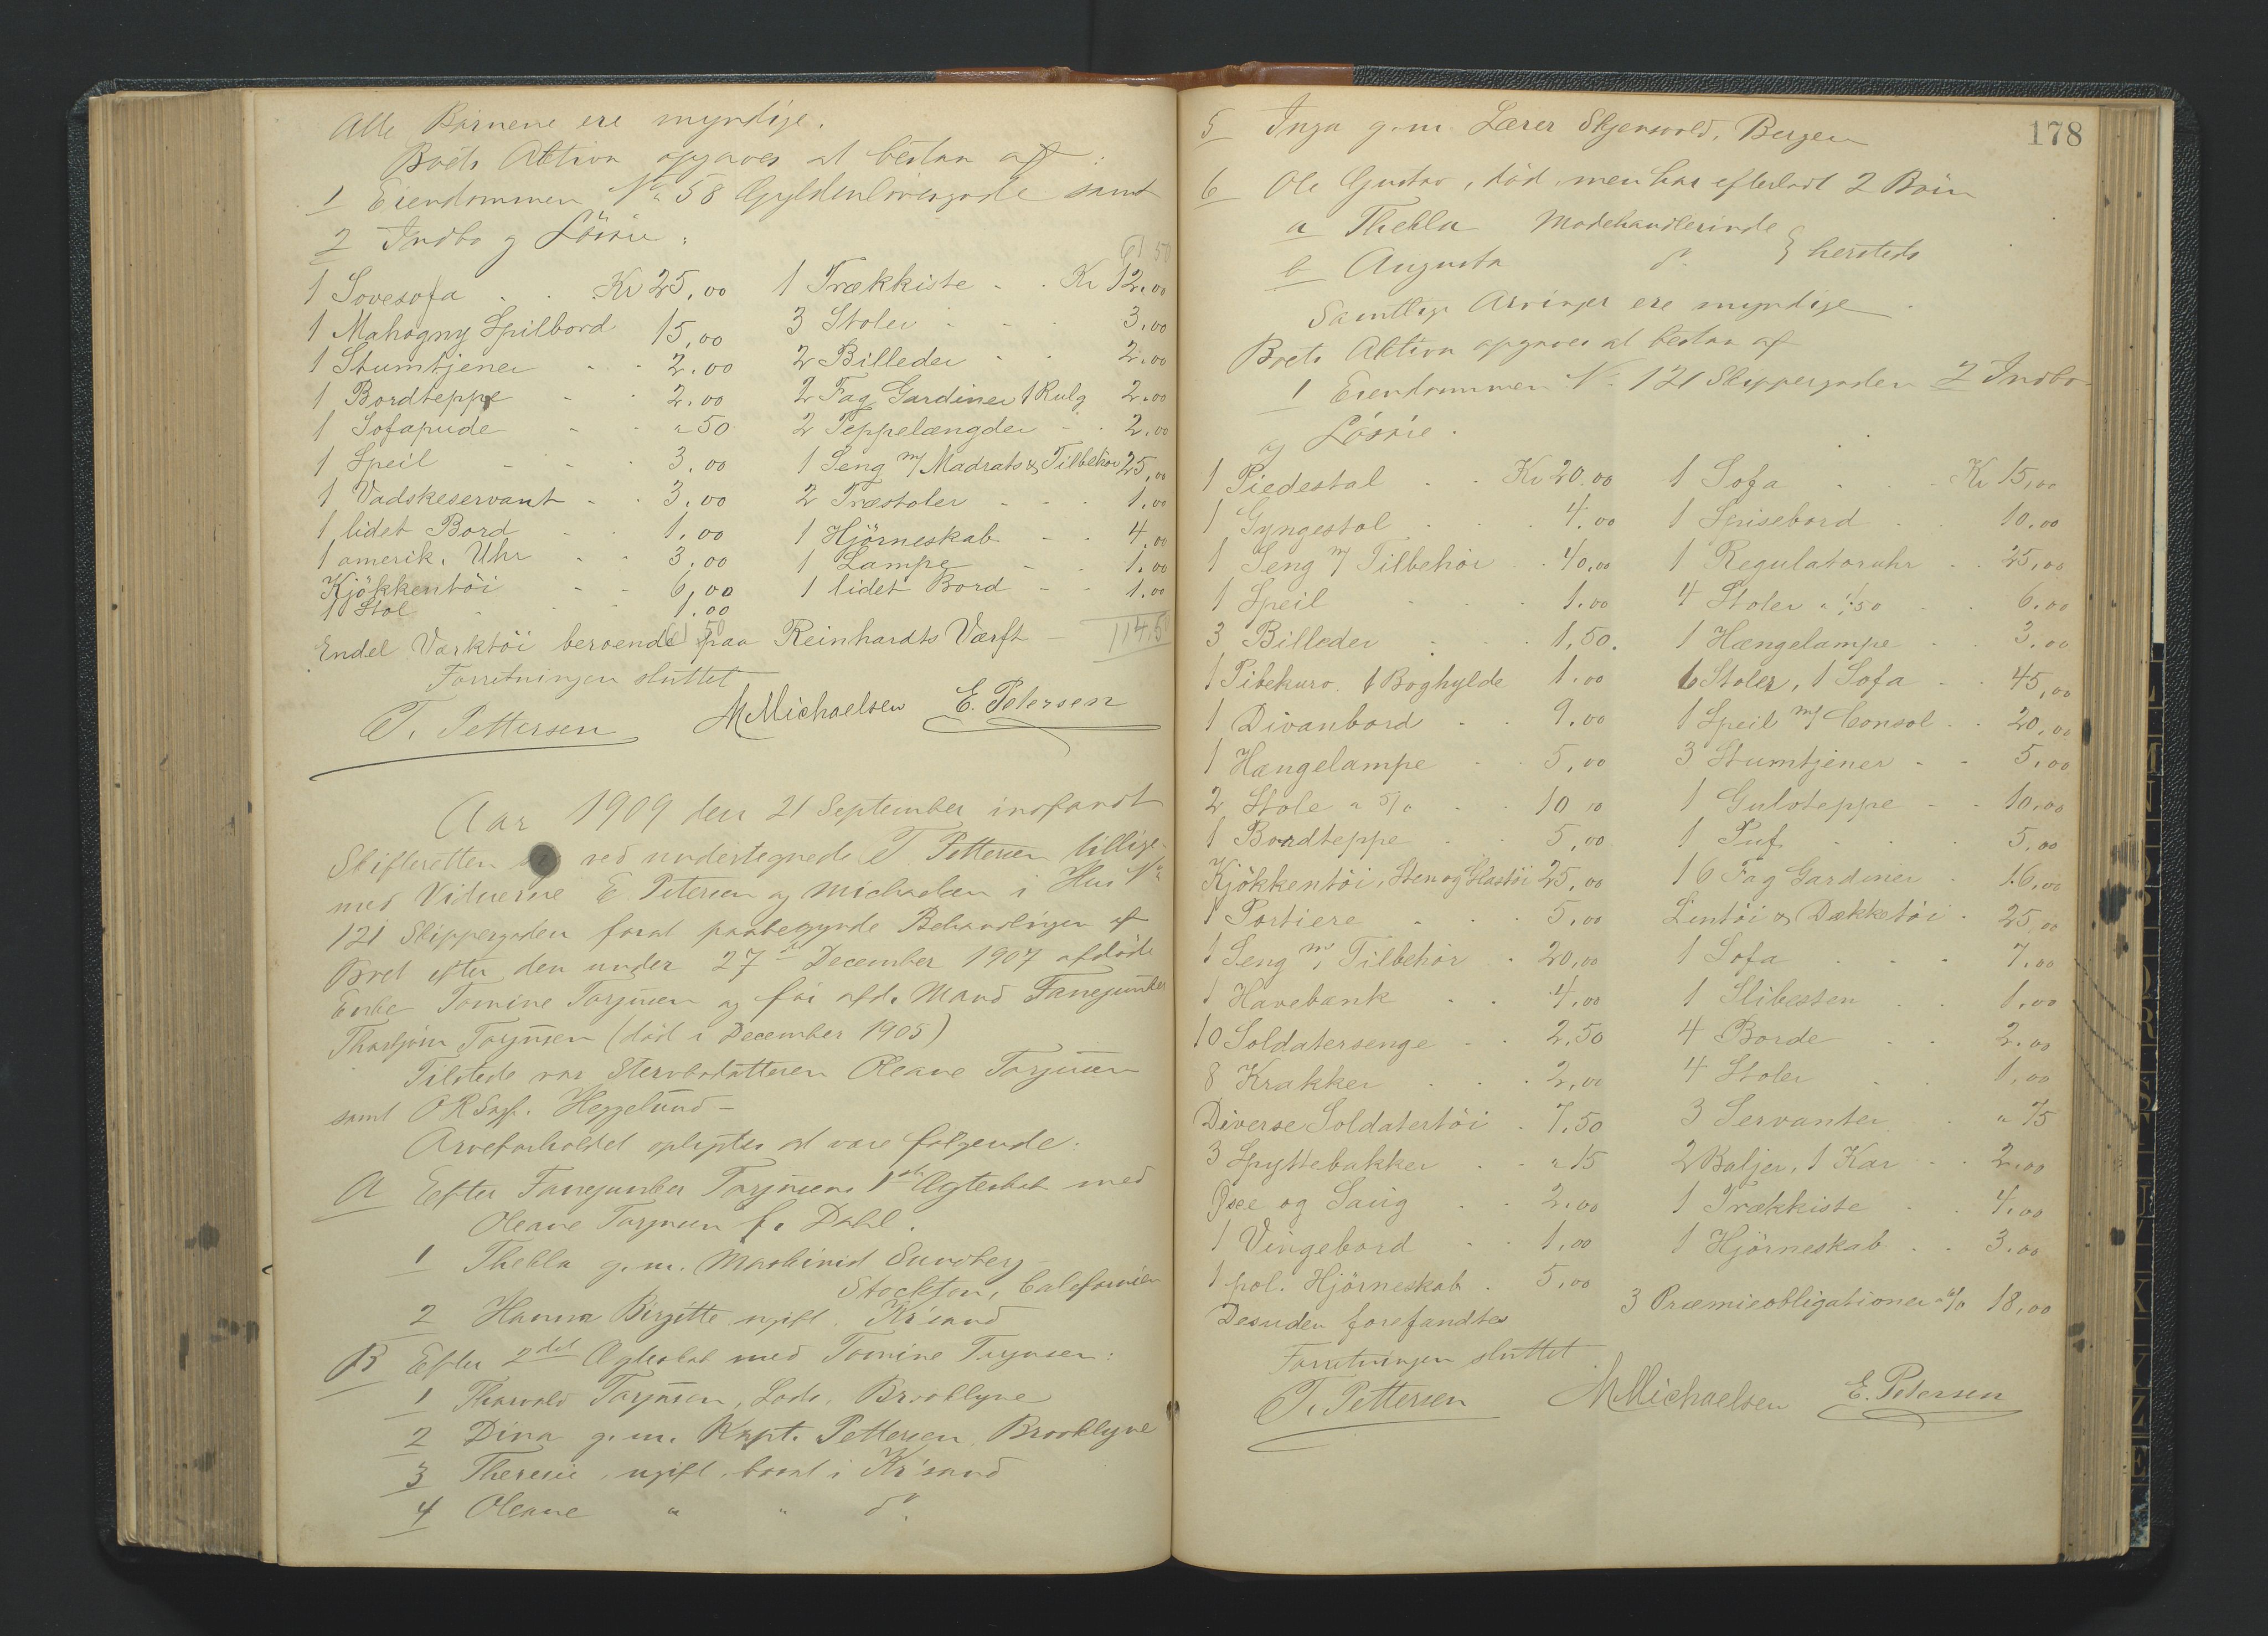 Alle Børnene ere myndige.
Boets Aktiva opgaves at bestaa af:
1 Eiendommen No 58 Gyldenløvesgade samt
2 Indbo og Løsøre:
61 50
1 Sovesofa Kr 25,00 1 Trækkiste Kr 12,00
1 Mahogny Spilbord 15,00 3 Stoler 3,00
1 Stumtjener 2,00 2 Billeder 2,00
1 Bordteppe 2,00 2 Fag Gardiner 1 Rulg 2,00
1 Sofapude " 50 2 Teppelængder 2,00
1 Speil 3,00 1 Seng m/ Madrats & Tilbehör 25,00
1 Vadskeservant 3,00 2 Træstoler 1,00
1 lidet Bord 1,00 1 Hjörneskab 4,00
1 amerik. Uhr 3,00 1 Lampe 1,00
Kjökkentöi 6,00 1 lidet Bord 1,00
1 Stol 1,00
61 50
Endel Værktöi beroende paa Reinhardts Værft 114,50
Forretningen sluttet
T. Pettersen M Michaelsen E. Petersen
Aar 1909 den 21 September indfandt
Skifteretten sig ved undertegnede T. Pettersen tillige-
med Vidnerne E. Petersen og Michaelsen i Hus No
121 Skippergaden forat paabegynde Behandlingen af
Boet efter den under 27de December 1907 afdöde
Enke Tomine Torjusen og för afd. Mand Fanejunker
Thorbjörn Torjusen (död i December 1905)
Tilstede var Stervbodatteren Oleane Torjusen
samt ORSagf. Heggelund -
Arveforholdet oplystes at være følgende:
A Efter Fanejunker Torjusens 1ste Ægteskab med
Oleane Torjusen f. Dahl.
1 Thekla g.m. Maskinist Sundberg
Stockton, Californien
2 Hanna Birgitte ugift. Kr'sand
B Efter 2det Ægteskab med Tomine Torjusen:
1 Thorvald Torjusen, Lods, Brooklyne
2 Dina g.m. Kapt. Pettersen, Brooklyne
3 Theresie, ugift, bosat i Kr'sand
4 Oleane " " do.
178
5 Inga g.m. Lærer Skjensvold, Bergen
6 Ole Gustav, död, men har efterladt 2 Börn
a Thekla Modehandlerinde
b Augusta do. } hersteds
Samtlige Arvinger ere myndige.
Boets Aktiva opgaves at bestaa af
1 Eiendommen No. 121 Skippergaden 2 Indbo
og Lösöre.
1 Piedestal Kr 20,00 1 Sofa Kr 15,00
1 Gyngestol 4,00 1 Spisebord 10,00
1 Seng m/ Tilbehör 40,00 1 Regulatoruhr 25,00
1 Speil 1,00 4 Stoler à 1,50 6,00
3 Billeder 1,50. 1 Hængelampe 3,00
1 Pibekurv, 1 Boghylde 1,00 6 Stoler, 1 Sofa 45,00
1 Divanbord 9,00 1 Speil m/ Consol 20,00
1 Hængelampe 5,00 3 Stumtjener 5,00
2 Stole à 5/0 10,00 1 Gulvteppe 10,00
1 Bordteppe 5,00 1 Puf 5,00
Kjökkentöi, Sten og Glastöi 25,00 16 Fag Gardiner 16,00
1 Portiere 5,00 Lintöi & Dækketöi 25,00
1 Seng m/ Tilbehör 20,00 1 Sofa 7,00
1 Havebænk 4,00 1 Slibesten 1,00
10 Soldatersenge 2,50 4 Borde 2,00
8 Krakker 2,00 4 Stoler 1,00
Diverse Soldatertöi 7,50 3 Servanter " 75
3 Spyttebakker " 15 2 Baljer, 1 Kar 2,00
Öxe og Saug 2,00 1 Trækkiste 4,00
1 Vingebord 1,00 1 Hjörneskab 3,00
1 pol. Hjörneskab 5,00
Desuden forefandtes 3 Præmieobligationer à 6/0 18,00
Forretningen sluttet
T. Pettersen M Michaelsen E. Petersen